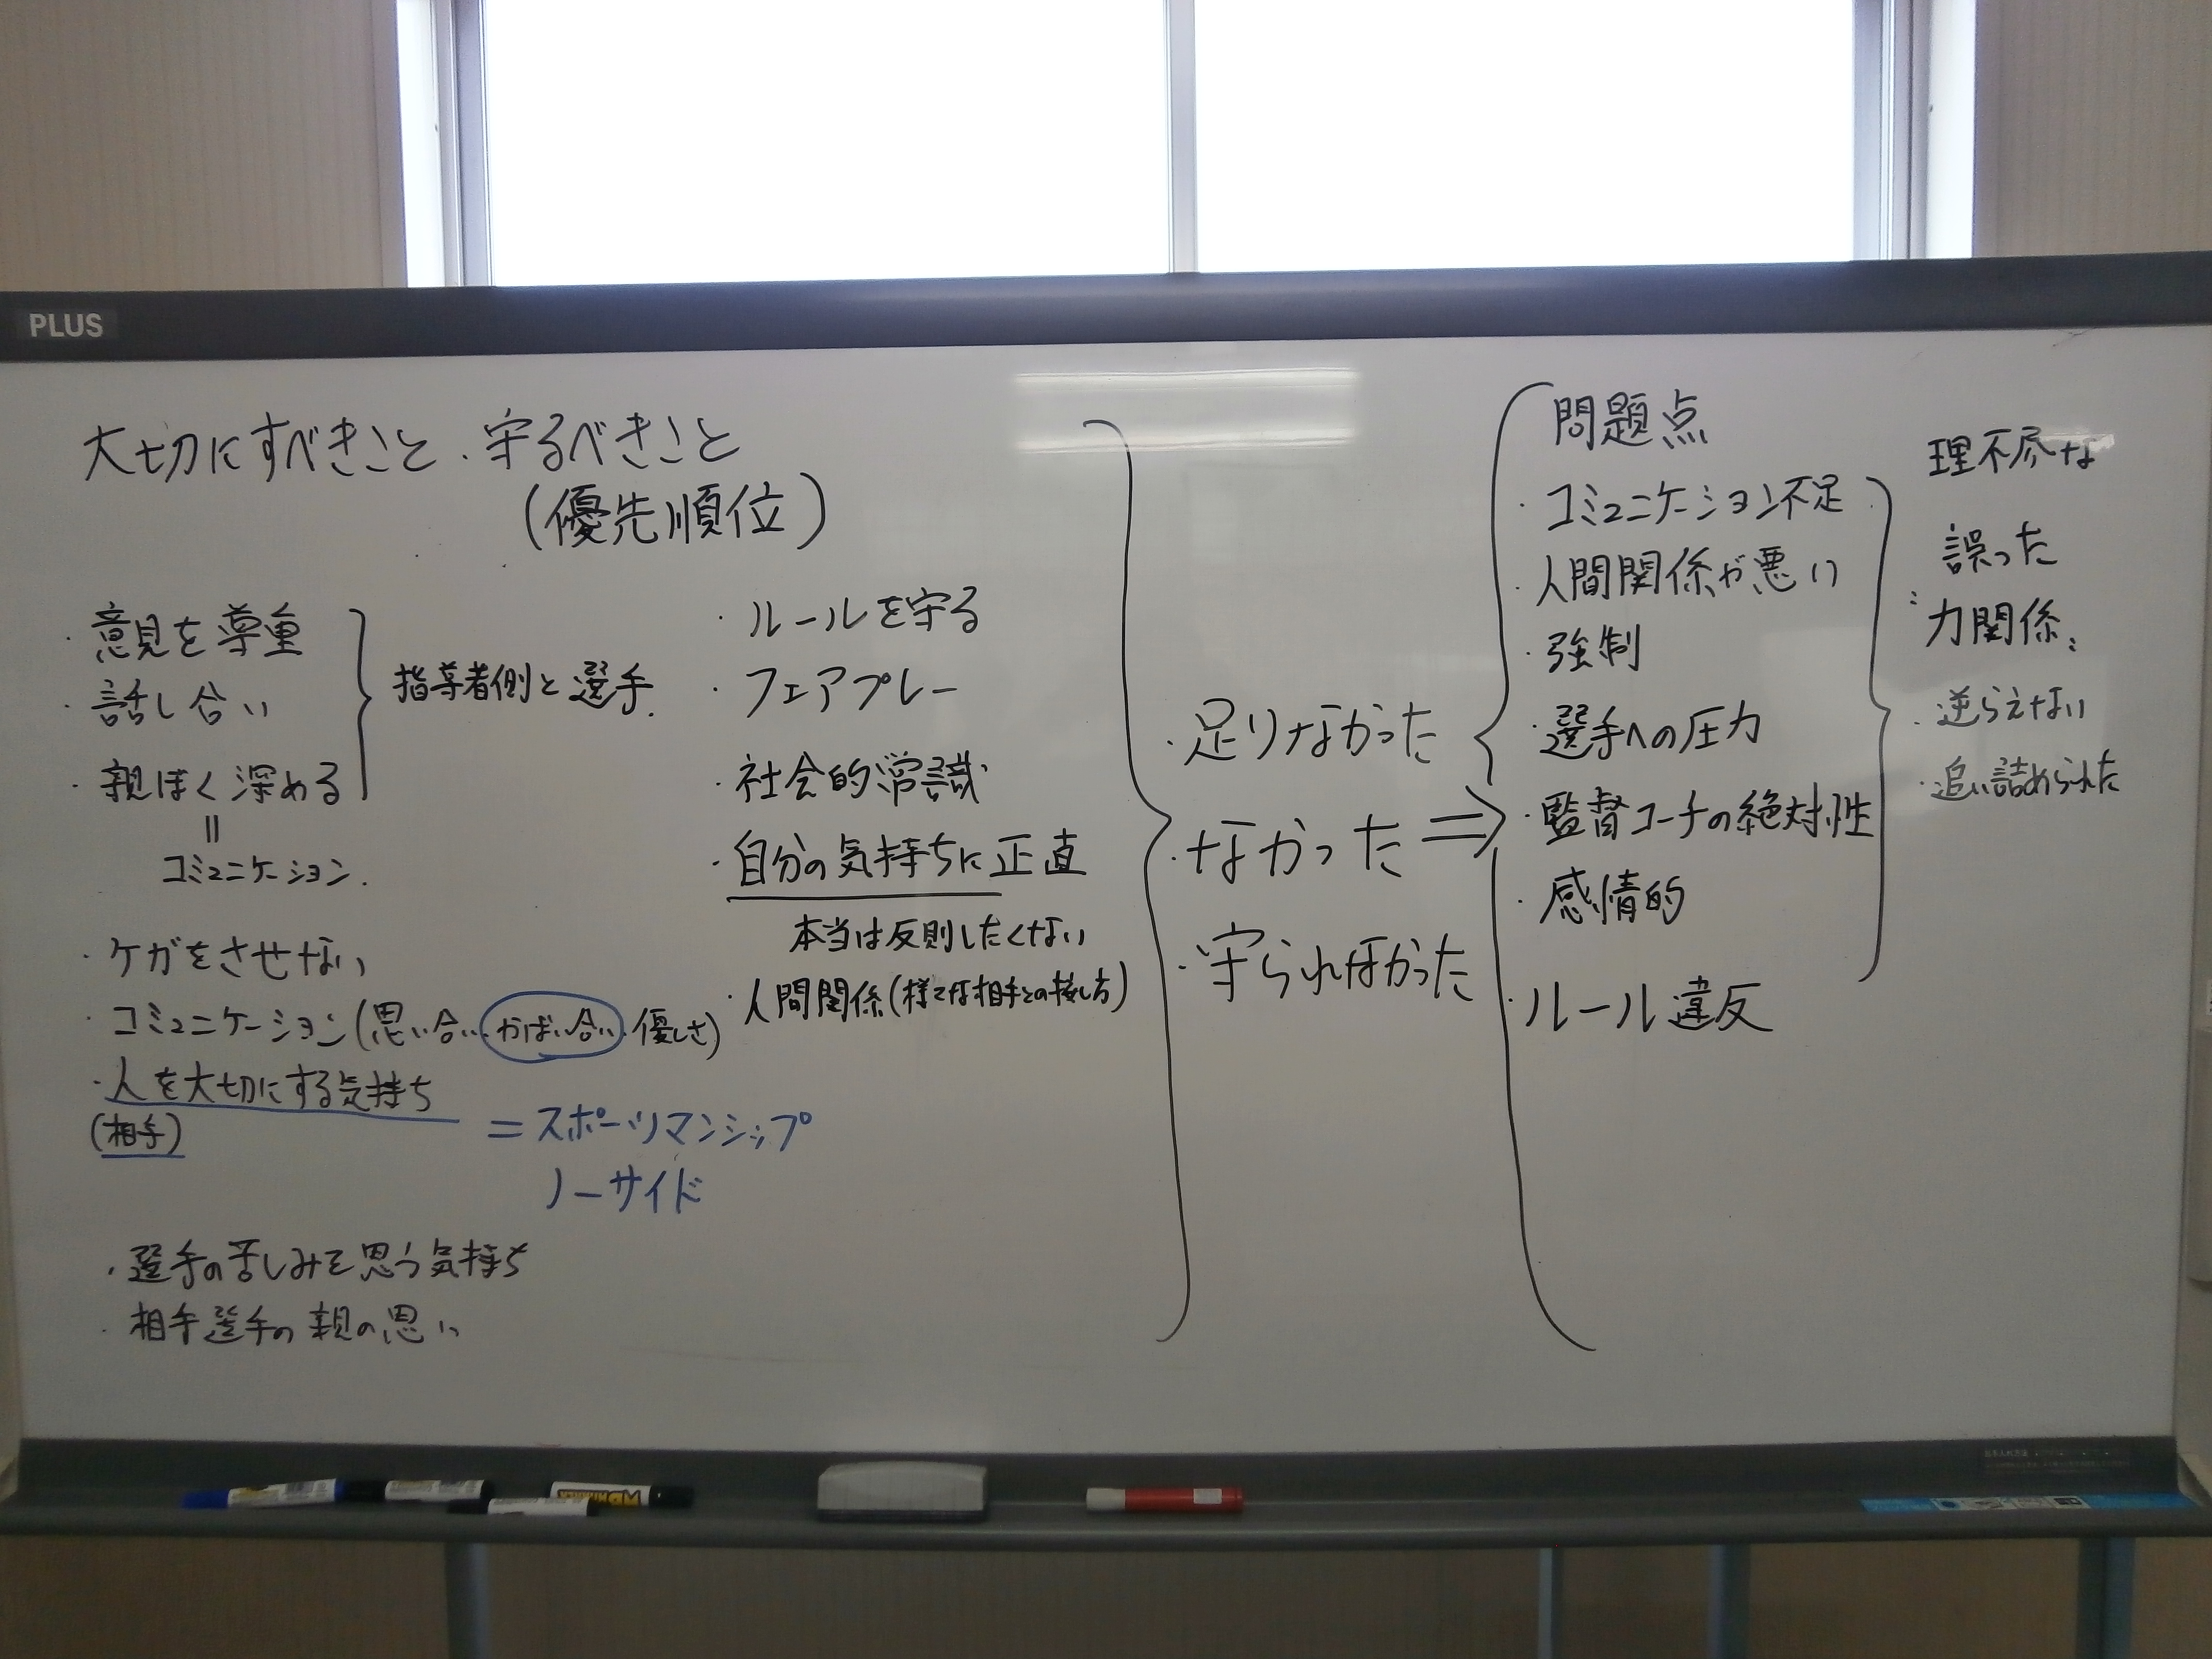 PLUS
大切にすべきこと・守るべきこと
(優先順位)
・意見を尊重
・話し合い
・親ぼく深める
||
コミュニケーション.
指導者側と選手.
・ケガをさせない
・コミュニケーション(思い合い・かばい合い・優しさ)
・人を大切にする気持ち
(相手)
=スポーツマンシップ
ノーサイド
・選手の苦しみを思う気持ち
・相手選手の親の思い
・ルールを守る
・フェアプレー
・社会的常識
・自分の気持ちに正直
本当は反則したくない
・人間関係(様々な相手との接し方)
・足りなかった
・なかった⇒
・守られなかった
問題点
・コミュニケーション不足
・人間関係が悪い
・強制
・選手への圧力
・監督コーチの絶対性
・感情的
・ルール違反
理不尽な
誤った
力関係
・逆らえない
・追い詰められた